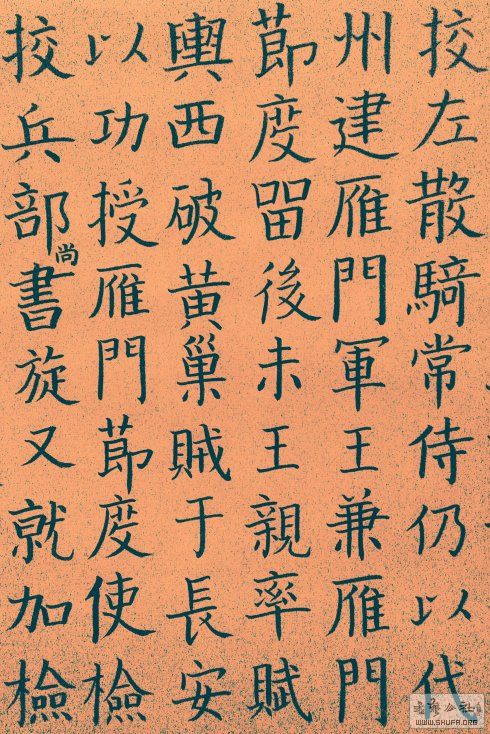 挍左散騎常侍仍以代
州建雁門軍王兼雁門
莭度留後未王親率賦
輿西破黄巢賊于長安
以功授雁門莭度使檢
挍兵部尚書旋又就加檢
WWW.SHUFA.ORG